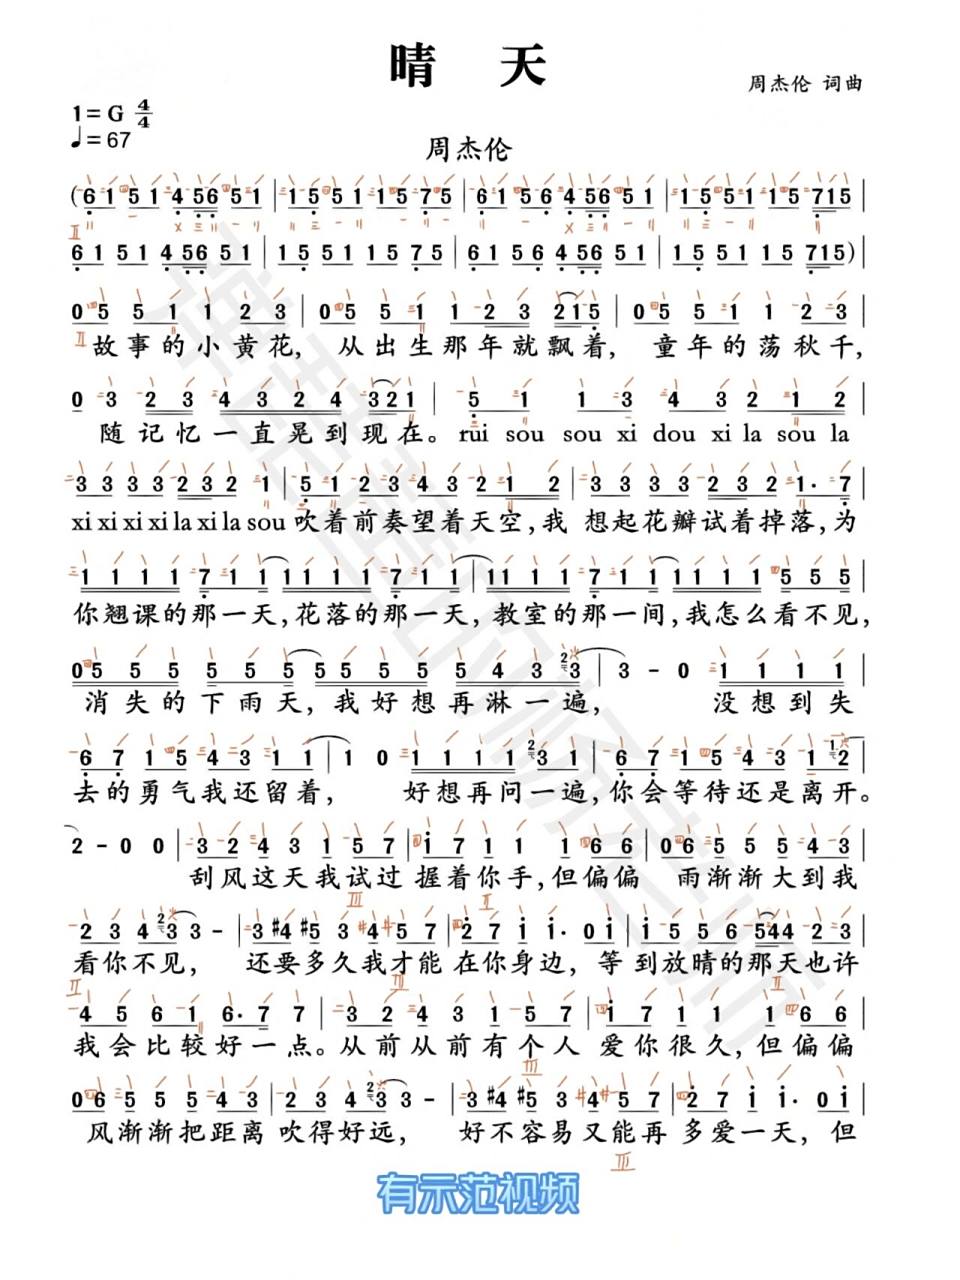 晴 天
周杰伦 词曲
1=G 4/4
♩=67
周杰伦
(61 51 4 56 51 | 15 51 15 75 | 61 56 4 56 51 | 15 51 15 715 |
61 51 4 56 51 | 15 51 15 75 | 61 56 4 56 51 | 15 51 15 715)
0 5 5 5 1 1 2 3 | 0 5 5 1 1 2 3 215 | 0 5 5 5 1 1 2 3
故事的小黄花, 从出生那年就飘着, 童年的荡秋千,
0 3 2 3 4 3 2 4 321 | 5 1 1 3 4 3 2 1 2
随记忆一直晃到现在。rui sou sou xi dou xi la sou la
3 3 3 3 2 3 2 1 | 5 1 2 3 4 3 2 1 1 2 | 3 3 3 3 2 3 2 1· 7
xi xi xi xi la xi la sou 吹着前奏望着天空, 我 想起花瓣试着掉落, 为
1 1 1 1 7 1 1 | 1 1 1 1 7 1 1 | 1 1 1 7 1 1 1 5 5 5
你翘课的那一天, 花落的那一天, 教室的那一间, 我怎么看不见,
0 5 5 5 5 5 5 | 5 5 5 5 5 4 3 3 | 3 - 0 1 1 1 1
消失的下雨天, 我好想再淋一遍, 没想到失
6 7 1 5 4 3 1 1 | 1 0 1 1 1 1 3 1 | 6 7 1 5 4 3 1 2
去的勇气我还留着, 好想再问一遍, 你会等待还是离开。
2 - 0 0 | 3 2 4 3 1 5 7 | 1 7 1 1 1 6 6 | 0 6 5 5 5 4 3
刮风这天我试过 握着你手, 但偏偏 雨渐渐大到我
2 3 4 3 3 - | 3 #4 #5 3 4 5 7 | 2 7 1 1· 0 1 | 1 5 5 6 5 4 4 2 3
看你不见, 还要多久我才能 在你身边, 等到放晴的那天也许
4 5 6 1 6· 7 7 | 3 2 4 3 1 5 7 | 1 7 1 1 1 6 6
我会比较好一点。从前从前有个人 爱你很久, 但偏偏
0 6 5 5 5 4 3 | 2 3 4 3 3 - | 3 #4 #5 3 4 5 7 | 2 7 1 1· 0 1
风渐渐把距离 吹得好远, 好不容易又能再 多爱一天, 但
有示范视频